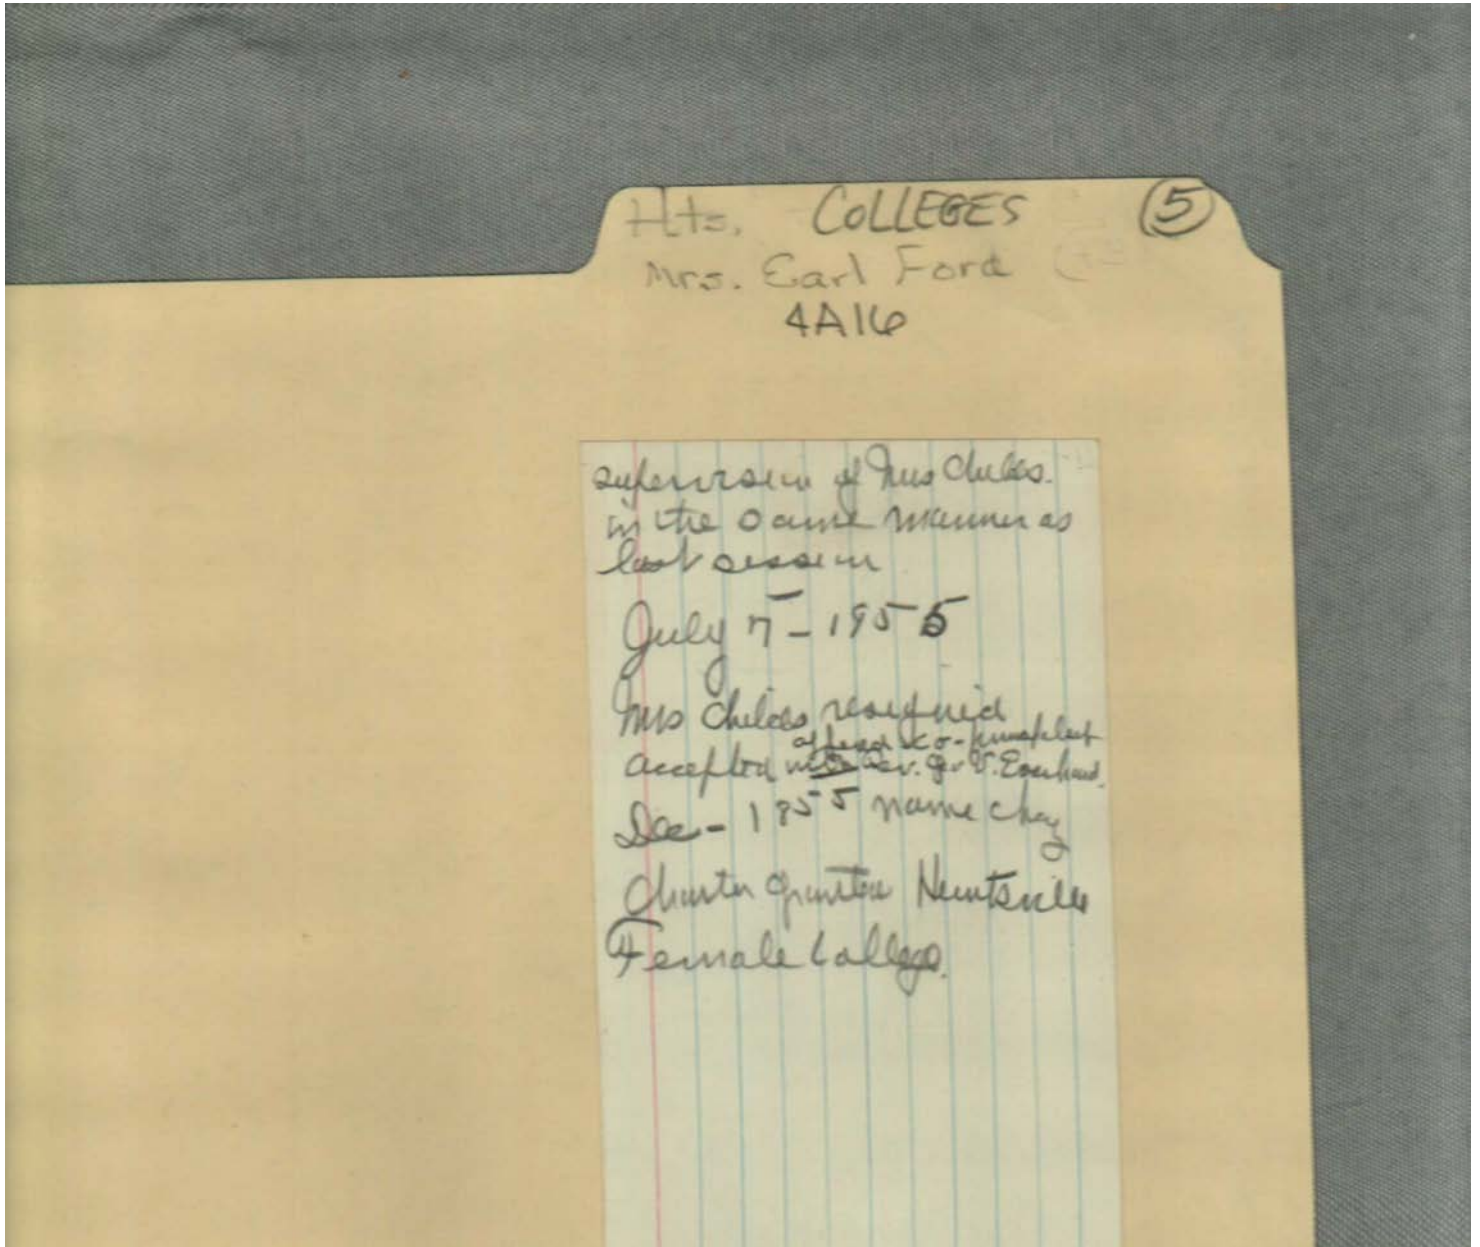 Hts. COLLEGES 5
Mrs. Earl Ford
4A16
supervision of Mrs Childs.
in the same manner as
last session
July 7 - 1955
Mrs Childs resigned
offered co-
accepted Rev. Geo V. Everhard.
Dec - 1855 name chg
Charter granted Huntsville
Female College.